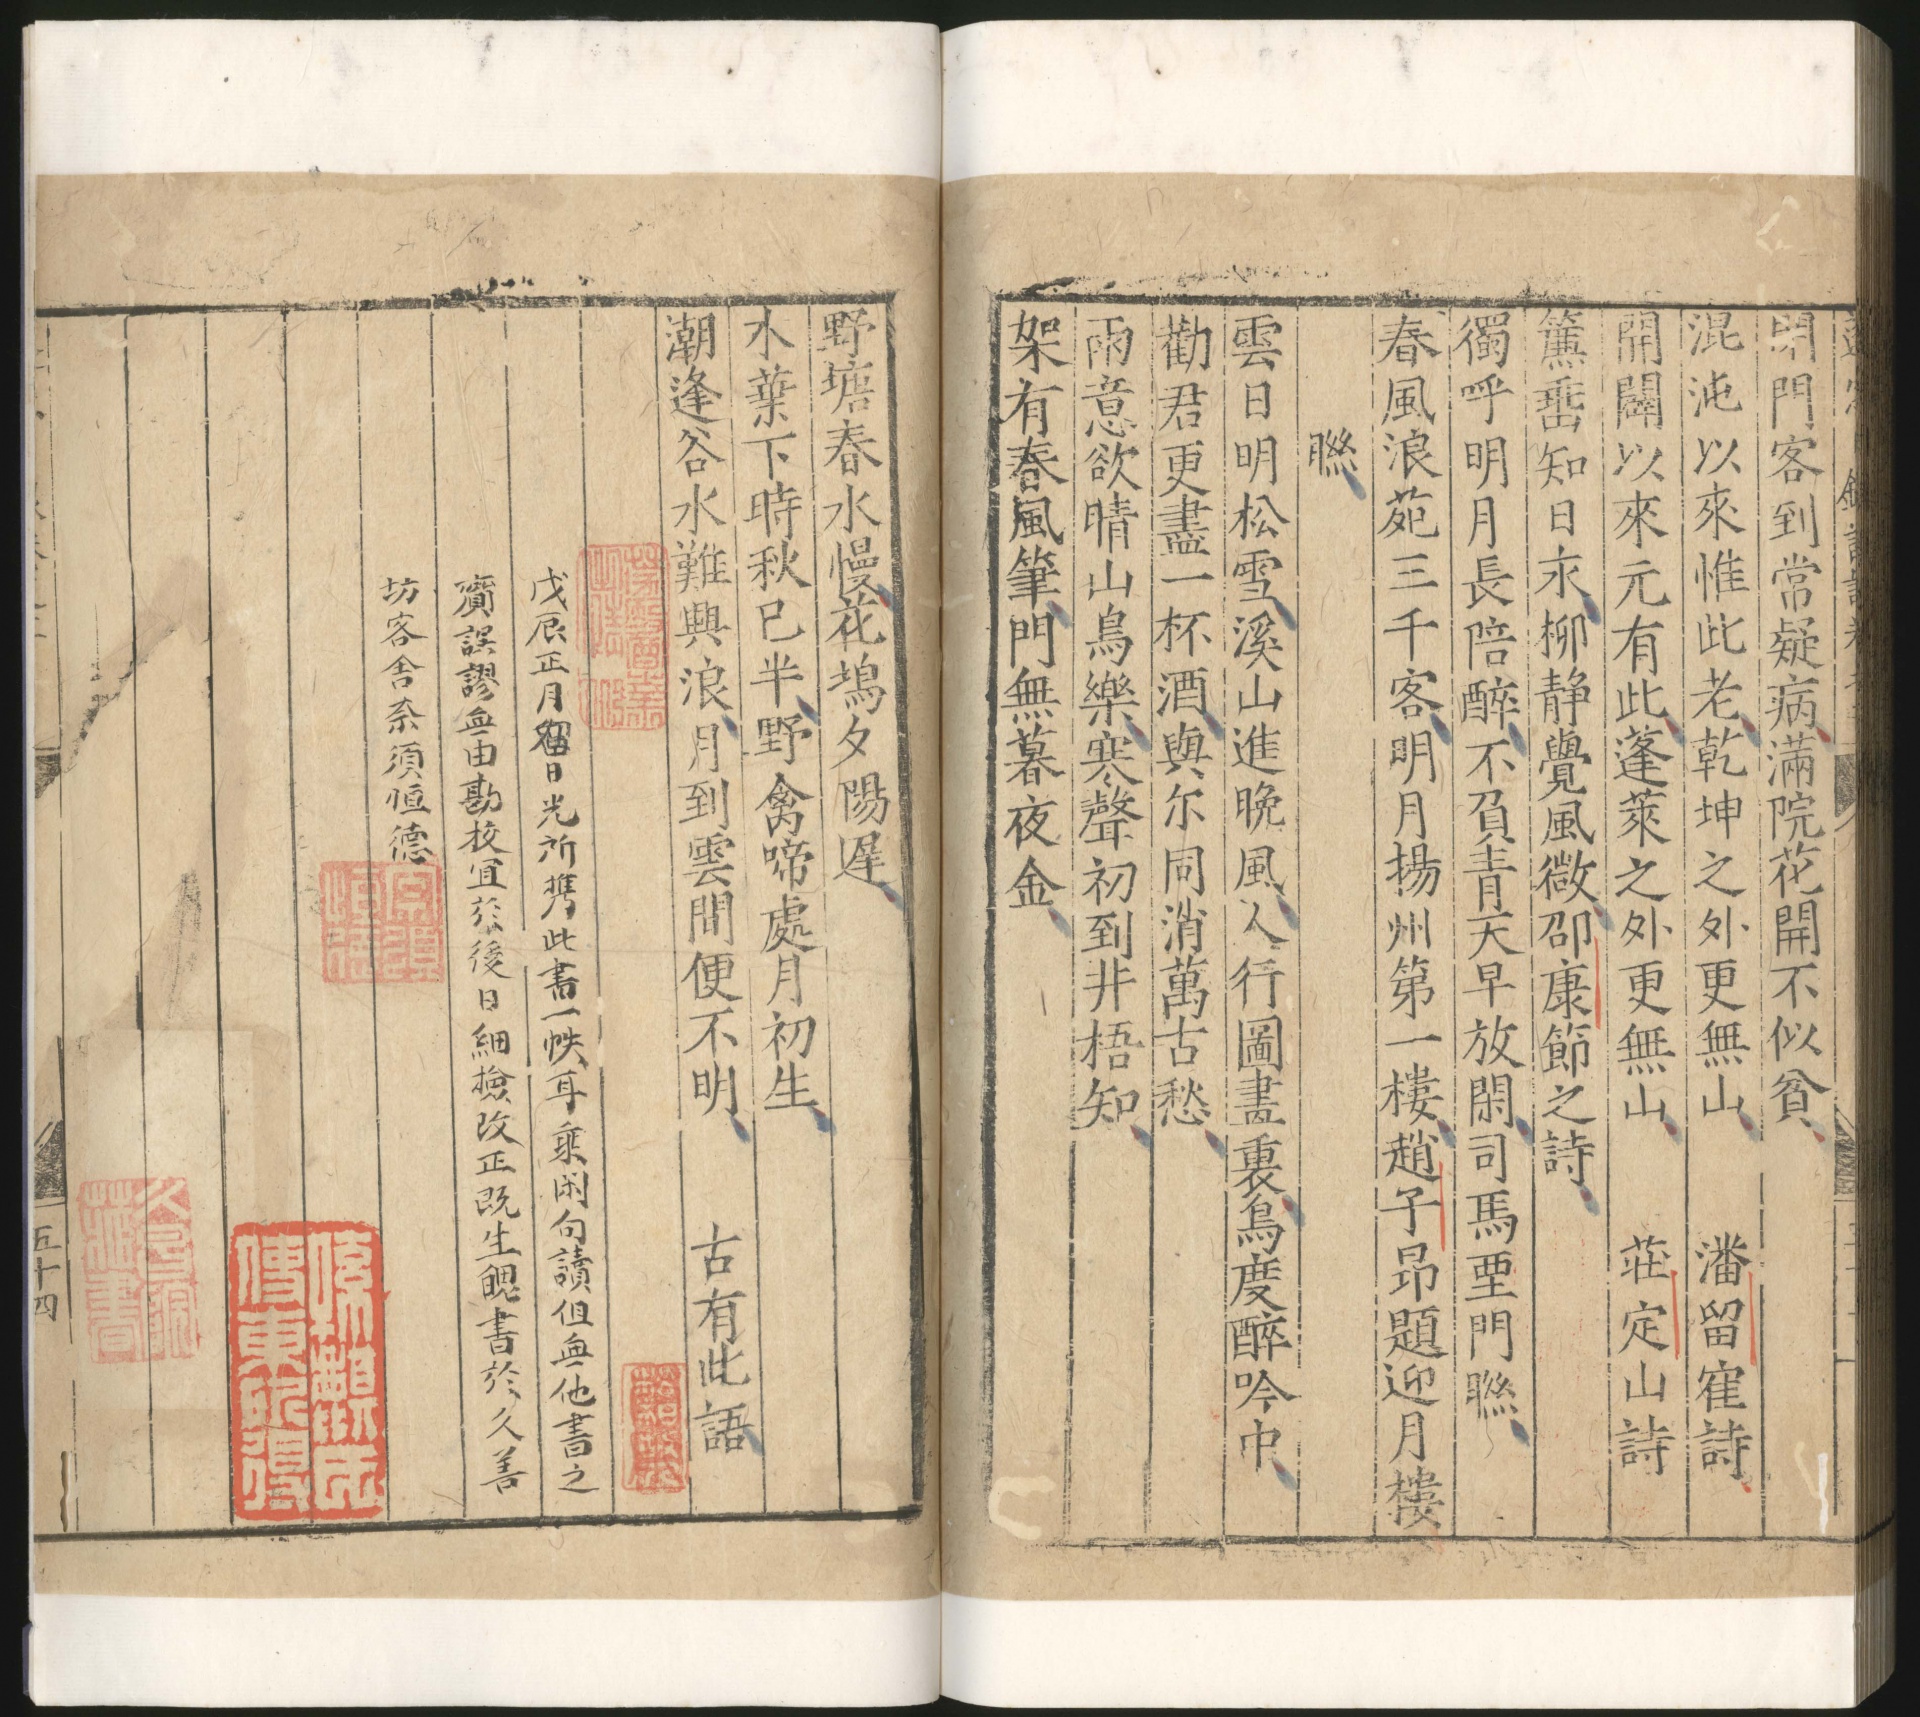 閉門客到常疑病滿院花開不似貧
混沌以來惟此老乾坤之外更無山　潘留寉詩
開闢以來元有此蓬萊之外更無山　莊定山詩
簾垂知日永柳静覺風微邵康節之詩
獨呼明月長陪醉不負青天早放閑司馬垔門聮
春風浪苑三千客明月揚州第一樓趙子昂題迎月樓
聮
雲日明松雪溪山進晚風人行圖畫裏鳥度醉吟中
勸君更盡一杯酒與尔同消萬古愁
雨意欲晴山鳥樂寒聲初到井梧知
架有春風筆門無暮夜金
野塘春水慢花塢夕陽遲
木葉下時秋已半野禽啼處月初生
潮逢谷水難興浪月到雲間便不明　古有此語
戊辰正月㽞日光所携此書一帙耳乘閑句讀但無他書之
賔誤謬無由勘校宜於後日細撿改正既生魄書於久善
坊客舍奈須恒德
五十四